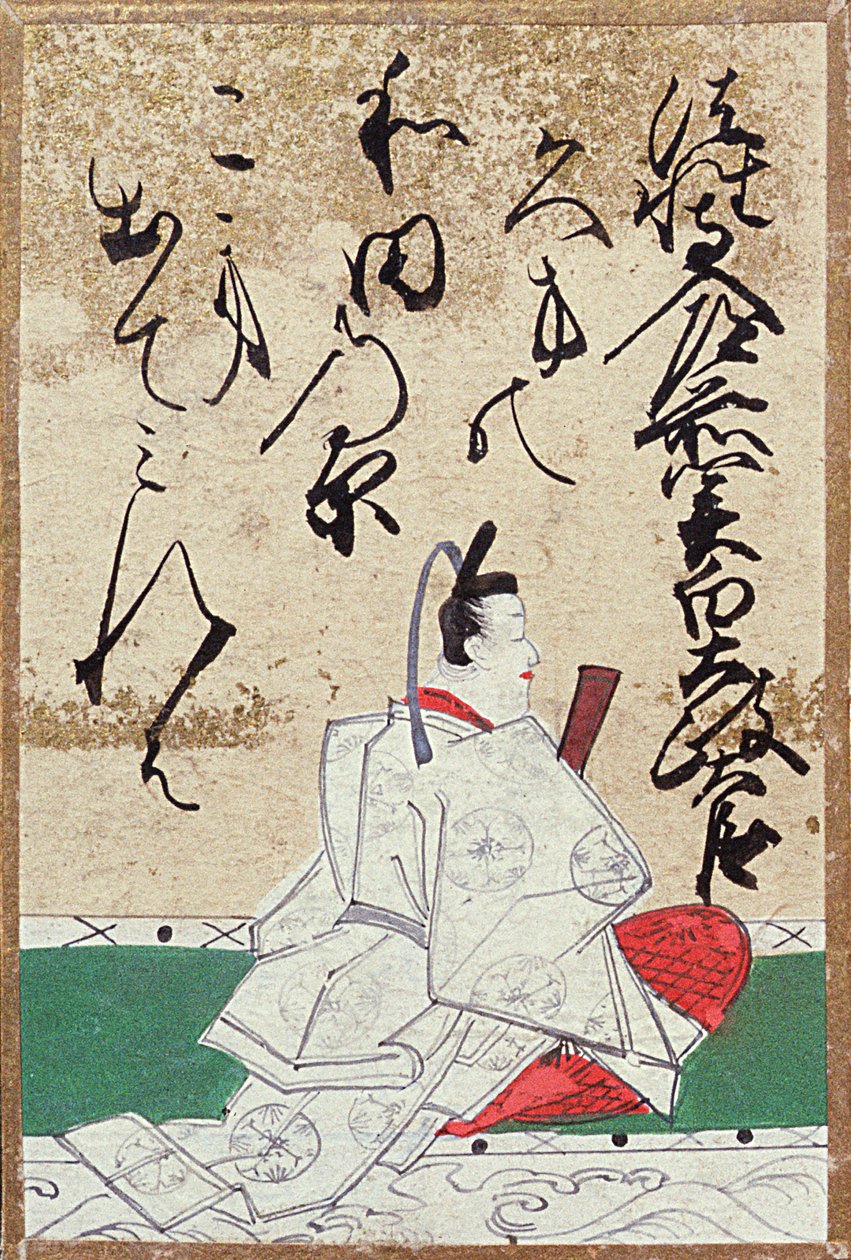 法性寺入道前関白太政大臣
和田の原
こき
出てみれは
久方の